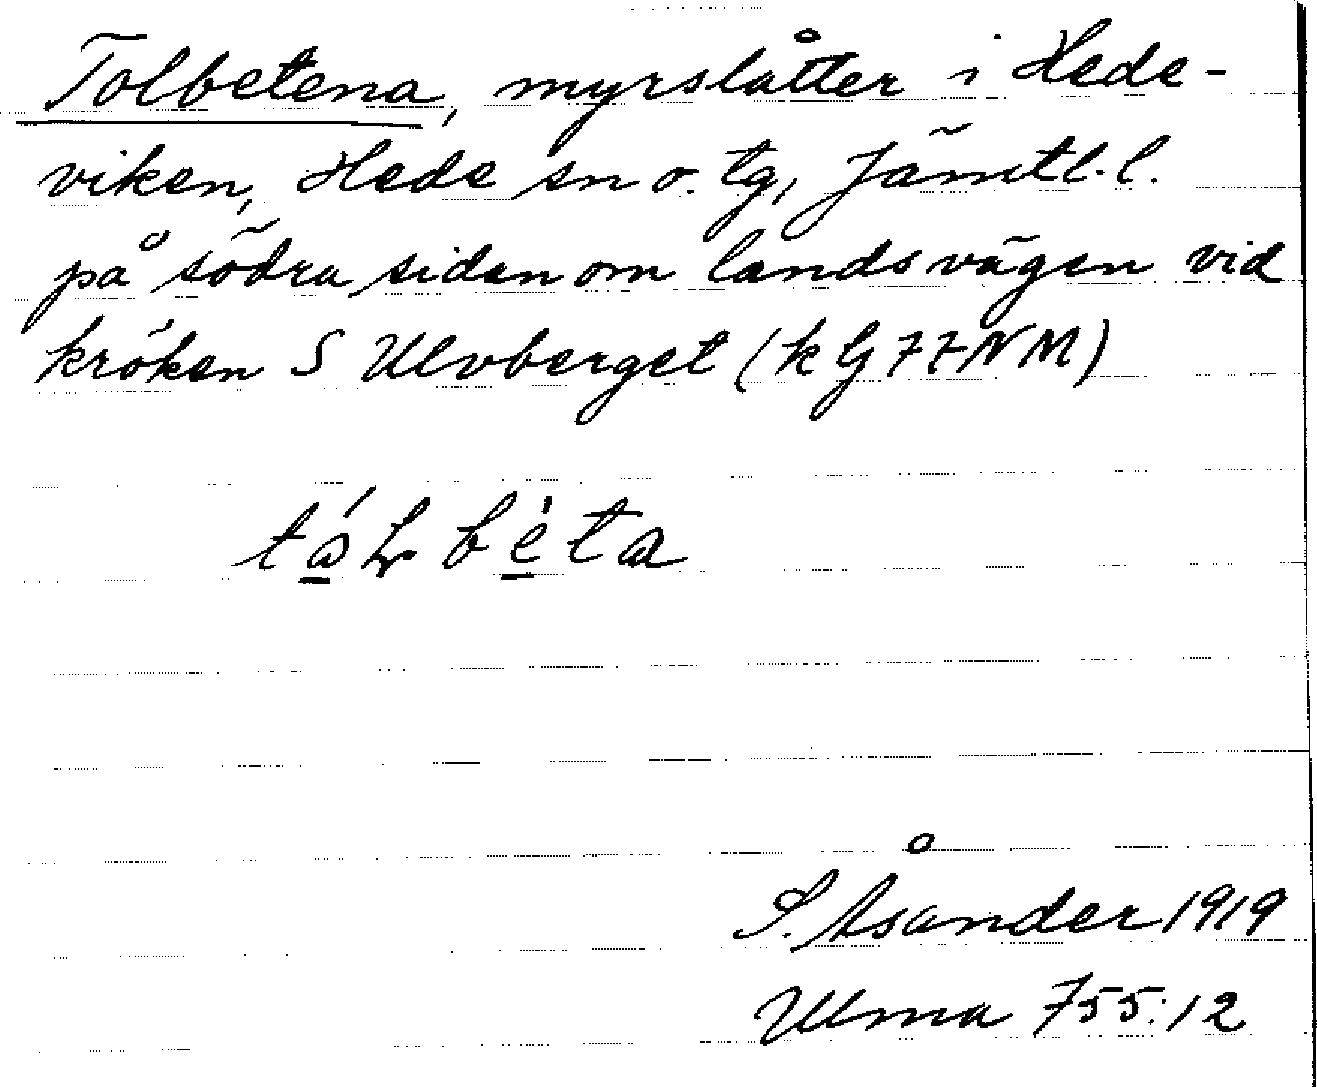 Tolbetena, myrslåtter i Hede-
viken, Hede sn o. tg, Jämtl.l.
på södra sidan om landsvägen vid
kröken S Ulvberget (k G 77 NM)
S. Åsander 1919
Ulma 755:12